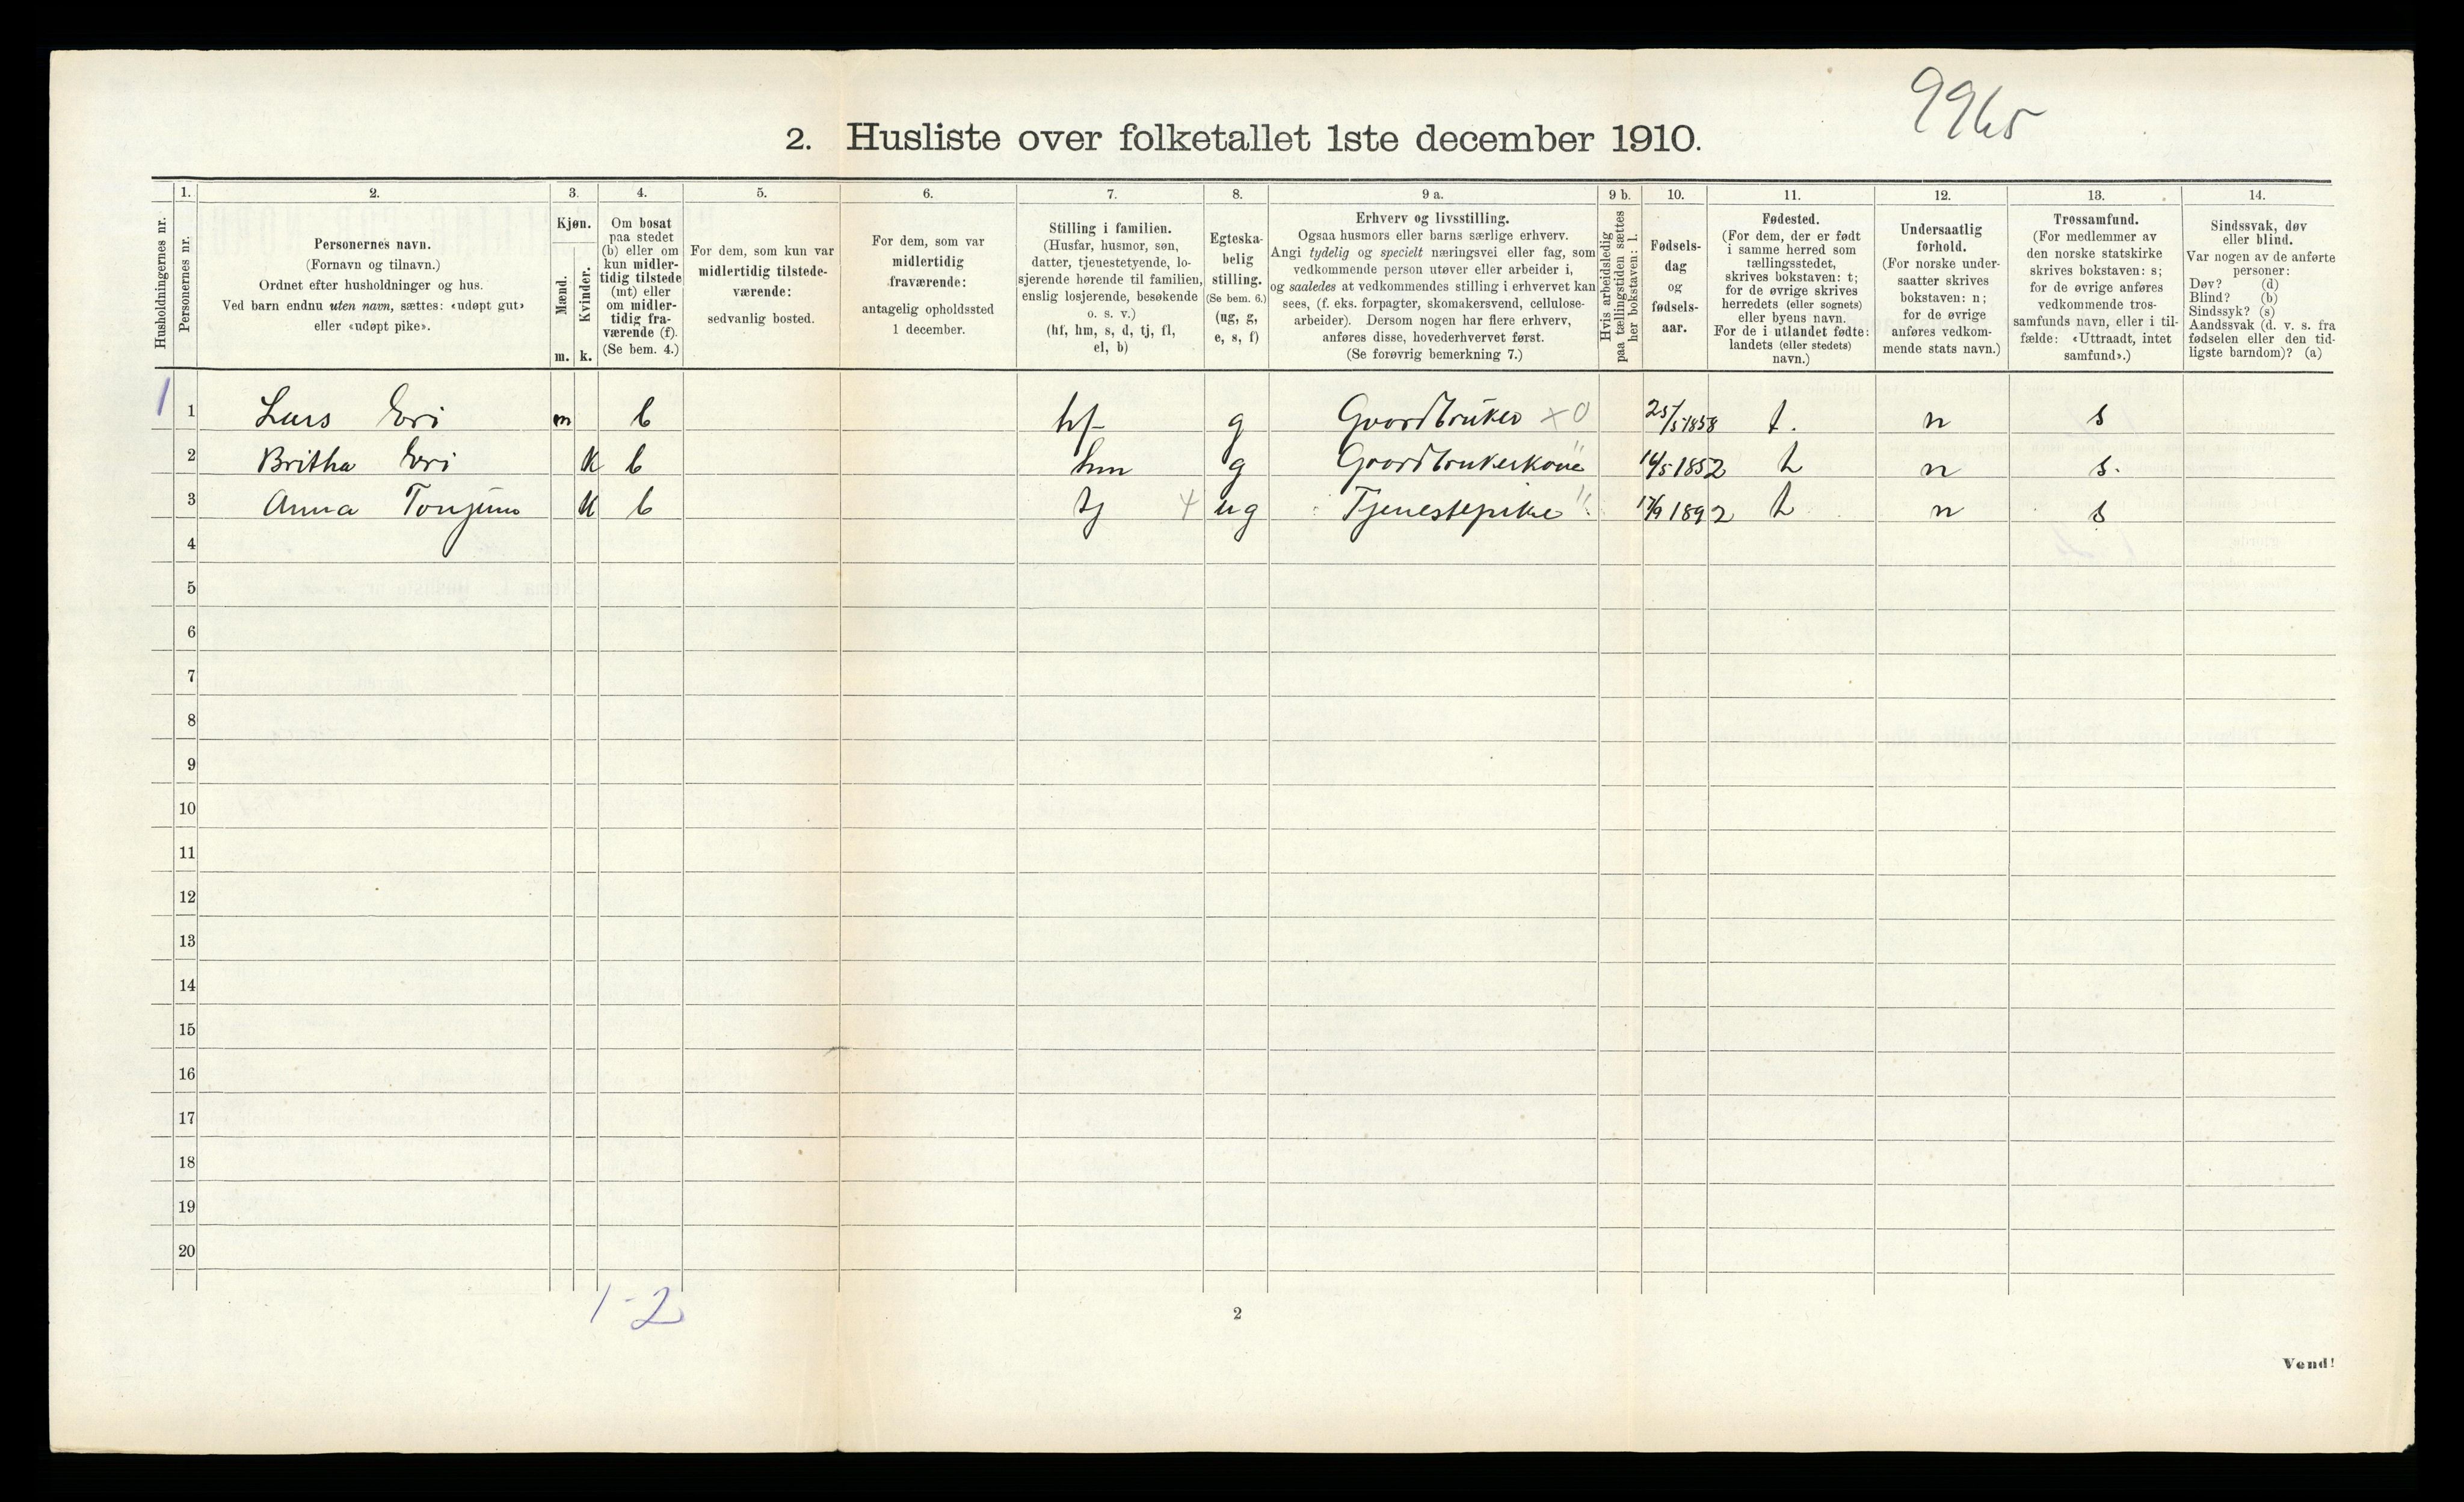 9965
2. Husliste over folketallet 1ste december 1910.
Husholdningernes nr.
1.
Personernes nr.
2.
Personernes navn.
(Fornavn og tilnavn.)
Ordnet efter husholdninger og hus.
Ved barn endnu uten navn, sættes: «udøpt gut»
eller «udøpt pike».
3.
Kjøn.
Mænd.
Kvinder.
m. k.
4.
Om bosat
paa stedet
(b) eller om
kun midler-
tidig tilstede
(mt) eller
om midler-
tidig fra-
værende (f).
(Se bem. 4.)
5.
For dem, som kun var
midlertidig tilstede-
værende:
sedvanlig bosted.
6.
For dem, som var
midlertidig
fraværende:
antagelig opholdssted
1 december.
7.
Stilling i familien.
(Husfar, husmor, søn,
datter, tjenestetyende, lo-
sjerende hørende til familien,
enslig losjerende, besøkende
o. s. v.)
(hf, hm, s, d, tj, fl,
el, b)
8.
Egteska-
belig
stilling.
(Se bem. 6.)
(ug, g,
e, s, f)
9 a.
Erhverv og livsstilling.
Ogsaa husmors eller barns særlige erhverv.
Angi tydelig og specielt næringsvei eller fag, som
vedkommende person utøver eller arbeider i,
og saaledes at vedkommendes stilling i erhvervet kan
sees, (f. eks. forpagter, skomakersvend, cellulose-
arbeider). Dersom nogen har flere erhverv,
anføres disse, hovederhvervet først.
(Se forøvrig bemerkning 7.)
9 b.
Hvis arbeidsledig
paa tællingstiden sættes
her bokstaven: l.
10.
Fødsels-
dag
og
fødsels-
aar.
11.
Fødested.
(For dem, der er født
i samme herred som
tællingsstedet,
skrives bokstaven: t;
for de øvrige skrives
herredets (eller sognets)
eller byens navn.
For de i utlandet fødte:
landets (eller stedets)
navn.)
12.
Undersaatlig
forhold.
(For norske under-
saatter skrives
bokstaven: n;
for de øvrige
anføres vedkom-
mende stats navn.)
13.
Trossamfund.
(For medlemmer av
den norske statskirke
skrives bokstaven: s;
for de øvrige anføres
vedkommende tros-
samfunds navn, eller i til-
fælde: «Uttraadt, intet
samfund».)
14.
Sindssvak, døv
eller blind.
Var nogen av de anførte
personer:
Døv? (d)
Blind? (b)
Sindssyk? (s)
Aandssvak (d. v. s. fra
fødselen eller den tid-
ligste barndom)? (a)
1 1 Lars Eri m b hf g Gaardbruker x 0 25/5 1858 t. n s
2 Britha Eri k b hm g Gaardbrukerkone " 14/5 1852 t n s.
3 Anna Tonjum k b tj ug Tjenestepike " 17/9 1892 t n s
4
5
6
7
8
9
10
11
12
13
14
15
16
17
18
19
20
1 - 2
2
Vend!